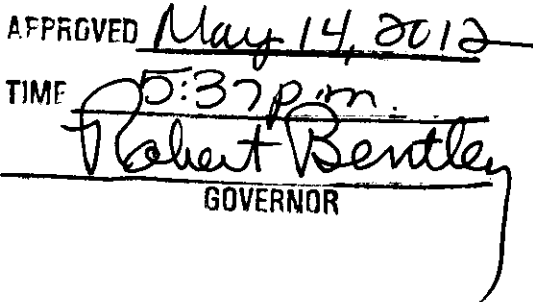 APPROVED May 14, 2012
TIME 5:37 p.m.
Robert Bentley
GOVERNOR